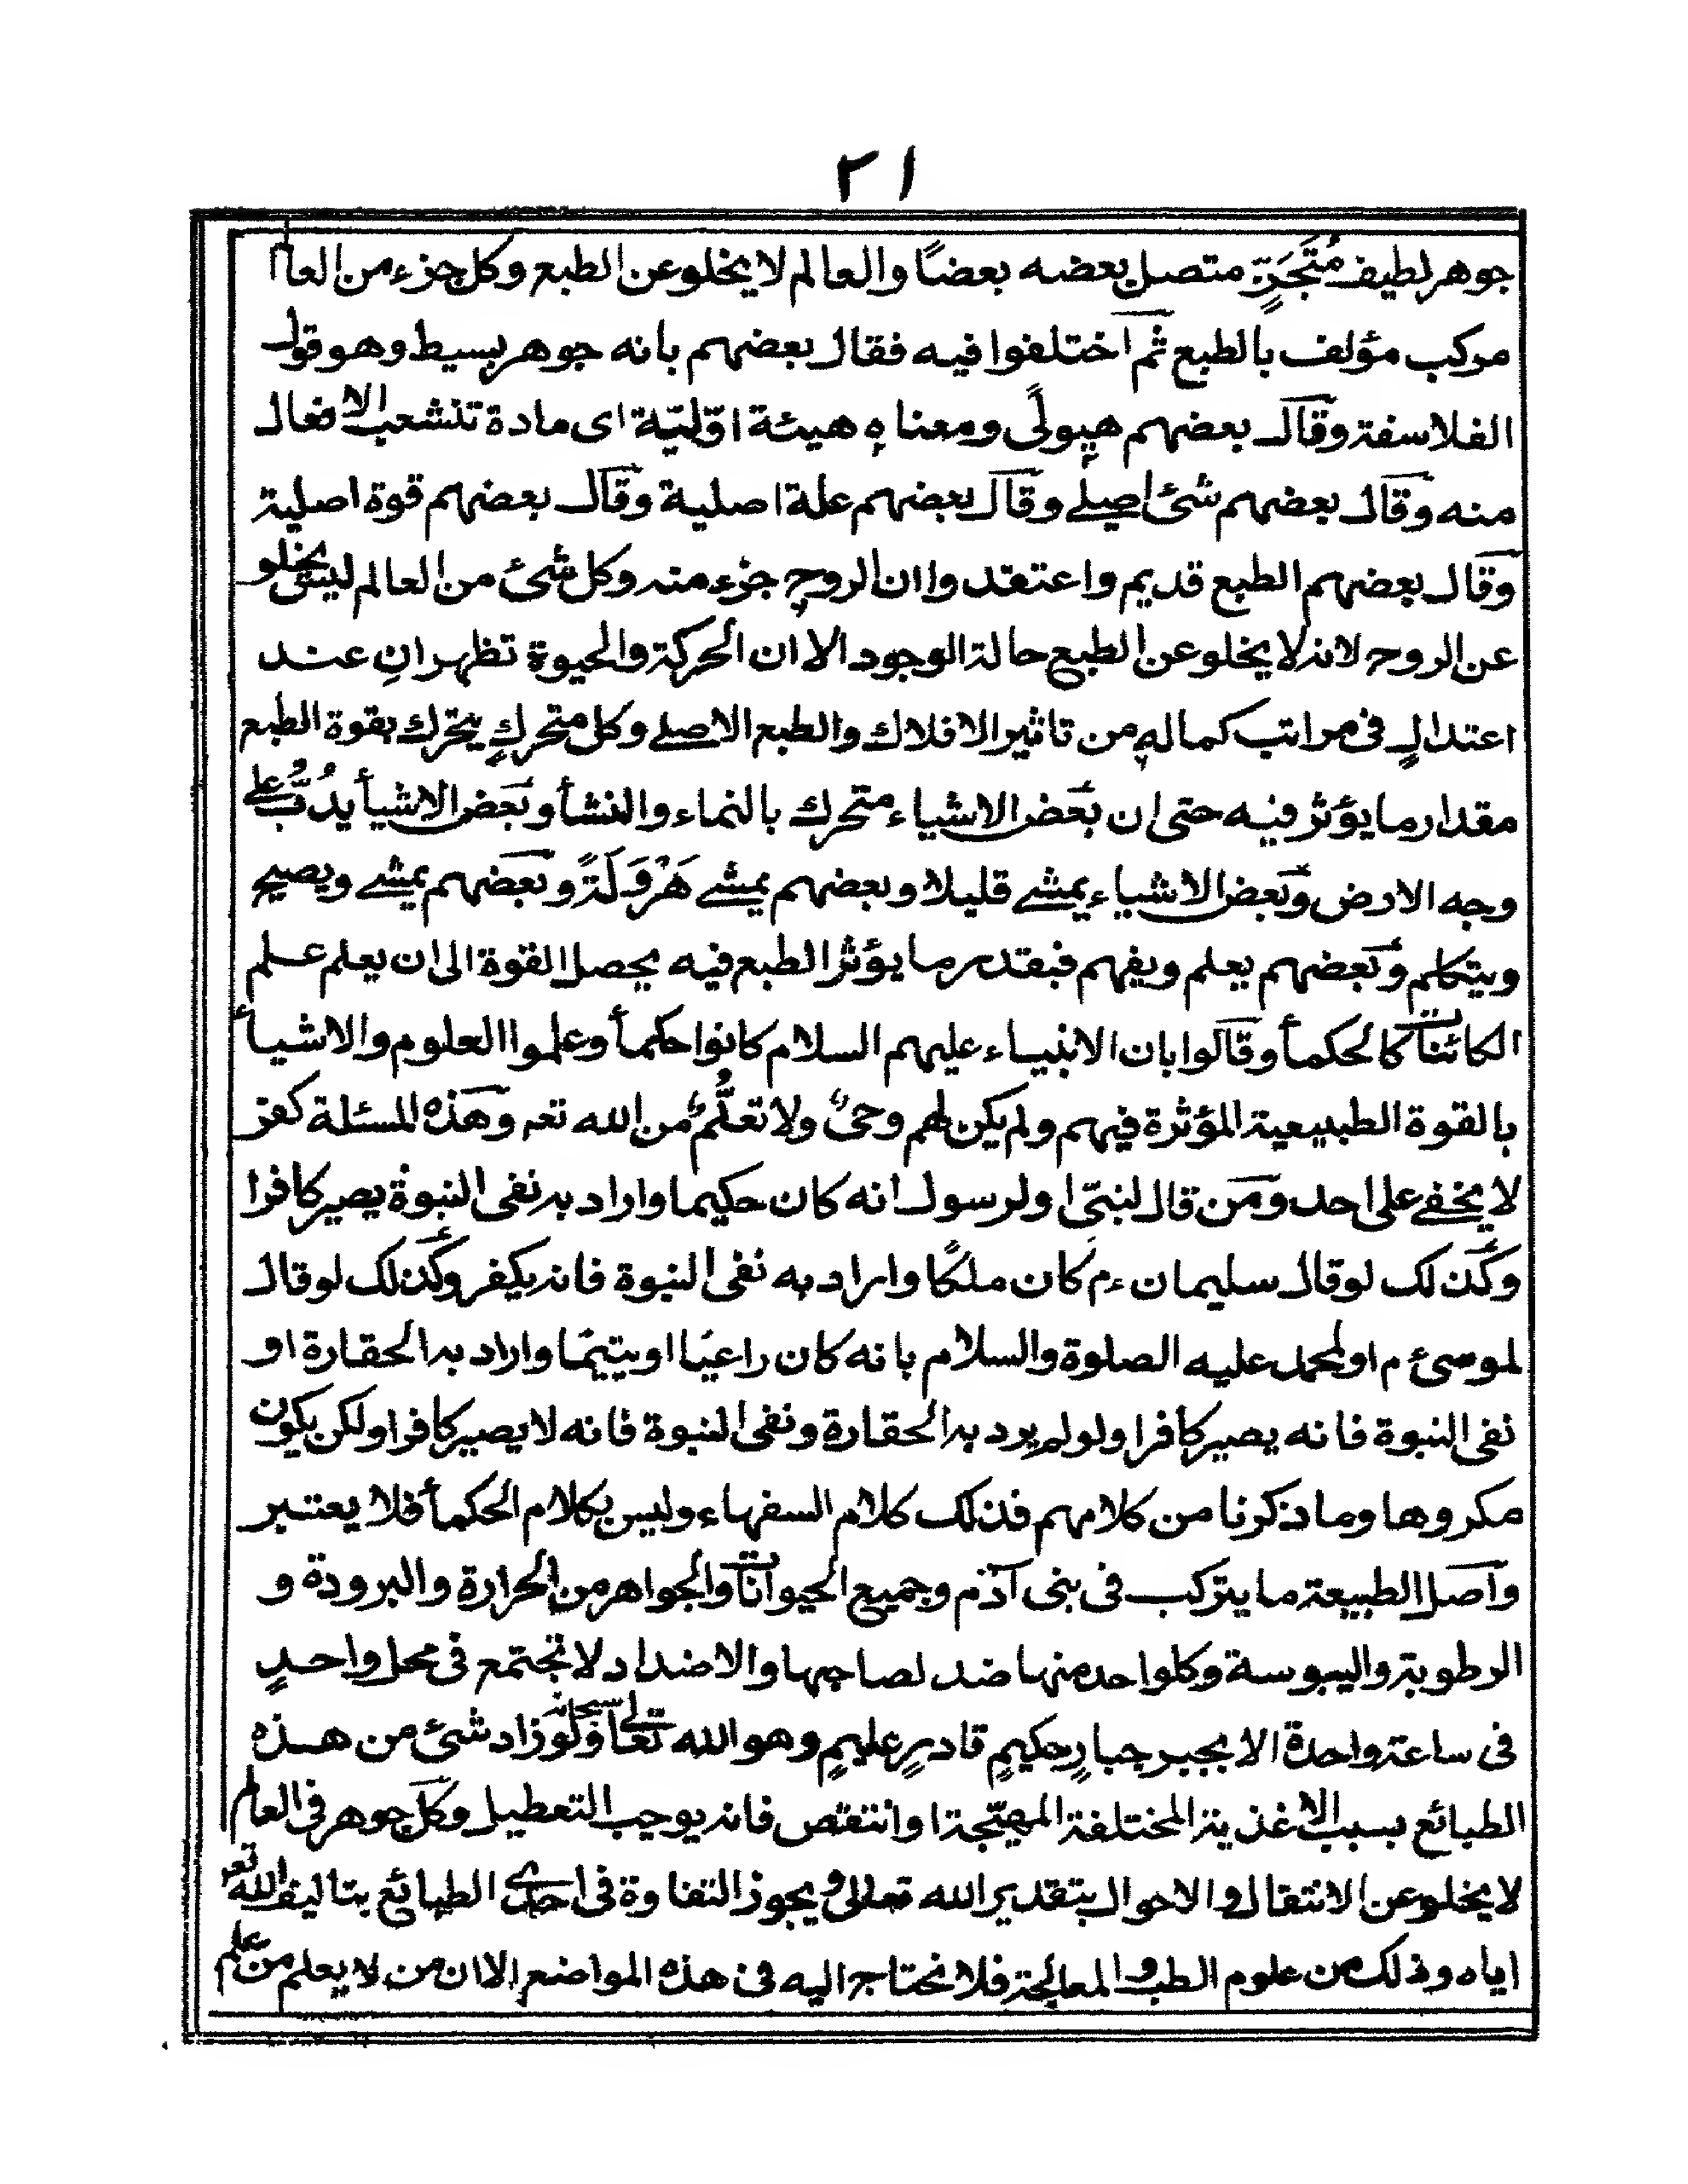 ٢١
جوهر لطيف مُتَجَزٍّ متصل بعضه بعضًا والعالم لا يخلو عن الطبع وكل جزء من العالم
مركب مؤلف بالطبع ثم اختلفوا فيه فقال بعضهم بانه جوهر بسيط وهو قول
الفلاسفة وقال بعضهم هيولًى ومعناه هيئة اوّليّة اى مادة تنشعب الافعال
منه وقال بعضهم شئ اصلے وقال بعضهم علة اصلية وقال بعضهم قوة اصلية
وقال بعضهم الطبع قديم واعتقدوا ان الروح جزء منه وكل شئ من العالم ليس يخلو
عن الروح لانه لا يخلو عن الطبع حالة الوجود الا ان الحركة والحيوة تظهرانِ عند
اعتدالٍ فى مراتب كماله من تاثير الافلاك والطبع الاصلے وكل متحركٍ يتحرك بقوة الطبع
مقدار ما يؤثر فيه حتى ان بعض الاشياء متحرك بالنماء والنشأ وبعض الاشيأ يدُبُّ على
وجه الارض وبعض الاشياء يمشے قليلا وبعضهم يمشے هَرْوَلَةً وبعضهم يمشے ويصيح
ويتكلم وبعضهم يعلم ويفهم فبقدر ما يؤثر الطبع فيه يحصل القوة الى ان يعلم علم
الكائنات كالحكمأ وقالوا بان الانبياء عليهم السلام كانوا حكمأ وعلموا العلوم والاشيأ
بالقوة الطبيعية المؤثرة فيهم ولم يكن لهم وحىٌ ولا تعلُّمٌ من الله تعه وهذه المسئلة كفر
لا يخفے على احد ومن قال لنبىّ او لرسول انه كان حكيما واراد به نفى النبوة يصير كافرا
وكذلك لو قال سليمان ءم كان ملكًا واراد به نفى النبوة فانه يكفر وكذلك لو قال
لموسىٰ ءم او لمحمد عليه الصلوة والسلام بانه كان راعيًا او يتيمًا واراد به الحقارة او
نفى النبوة فانه يصير كافرا ولو لم يرد به الحقارة ونفى النبوة فانه لا يصير كافرا ولكن يكون
مكروها وما ذكرنا من كلامهم فذلك كلام السفهاء وليس بكلام الحكمأ فلا يعتبر
واصل الطبيعة ما يتركب فى بنى آدم وجميع الحيوانات والجواهر من الحرارة والبرودة و
الرطوبة واليبوسة وكل واحد منها ضد لصاحبها والاضداد لا تجتمع فى محل واحدٍ
فى ساعة واحدة الا بجبر جبارٍ حكيمٍ قادرٍ عليمٍ وهو الله سبحانه تعالى فلو زاد شئ من هذه
الطبائع بسبب الاغذية المختلفة المهيّجة او انتقص فانه يوجب التعطيل وكل جوهر فى العالم
لا يخلو عن الانتقال والاحوال بتقدير الله تعالى ويجوز التفاوة فى احدى الطبائع بتاليف الله تعه
اياه وذلك من علوم الطب والمعالجة فلا نحتاج اليه فى هذه المواضع الا ان من لا يعلم من علم